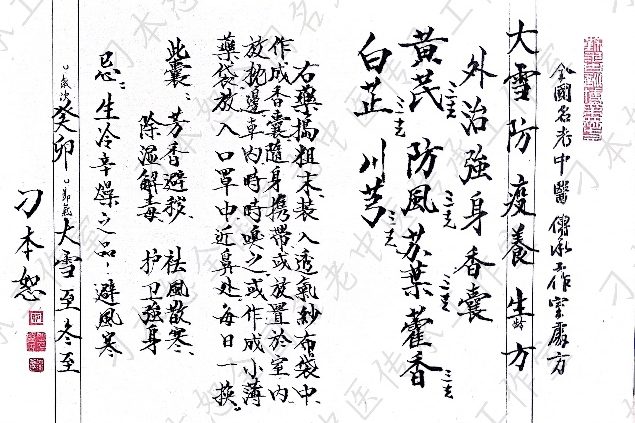 全國名老中醫傳承工作室處方
大雪防疫養生方
外治強身香囊
黃芪三克 防風三克 苏葉三克 藿香三克
白芷三克 川芎三克
右藥搗粗末、裝入透氣紗布袋中、
作成香囊隨身携帶或放置於室内、
放枕邊車内時時嗅之或作成小薄
藥袋放入口罩中近鼻处每日一换。
此囊：芳香避秽、祛風散寒、
除湿解毒 护卫強身
忌：生冷辛燥之品，避風寒
歲次癸卯 節氣大雪至冬至
刁本恕